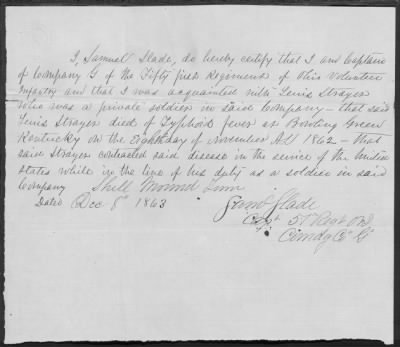 I, Samuel Slade, do hereby certify that I am Captain
of Company G of the Fifty first Regiment of Ohio Volunteer
Infantry and that I was acquainted with Lewis Strayer
who was a private soldier in said Company – that said
Lewis Strayer died of Typhoid fever at Bowling Green
Kentucky on the Eighth day of November AD 1862 – that
said Strayer contracted said disease in the service of the United
States while in the line of his duty as a soldier in said
Company Shell Mound Tenn
Dated Dec 8th 1863
Saml Slade
Capt 51 Regt OVI
Comdg Co G